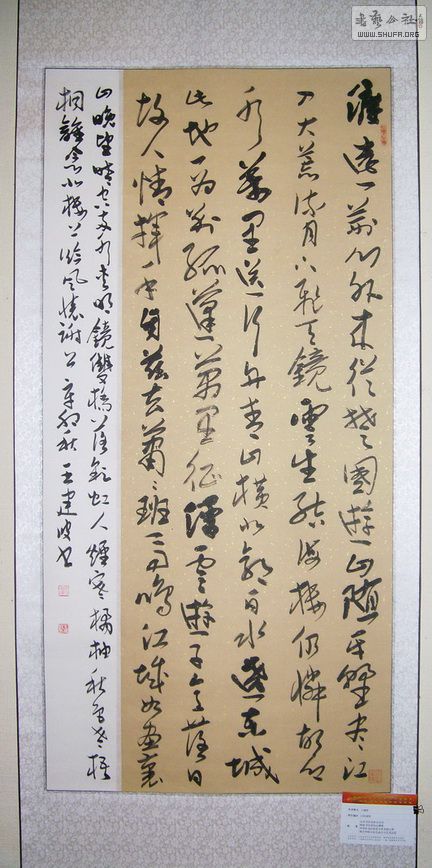 書藝公社
WWW.SHUFA.ORG
渡遠荊門外來從楚國遊山隨平野盡江
入大荒流月下飛天鏡雲生結海樓仍憐故鄉
水萬里送行舟青山橫北郭白水遶東城
此地一為別孤蓬萬里征浮雲遊子意落日
故人情揮手自茲去蕭蕭班馬鳴江城如畫裏
山曉望晴空兩水夾明鏡雙橋落彩虹人煙寒橘柚秋色老梧
桐誰念北樓上臨風懷謝公辛卯秋王建波书